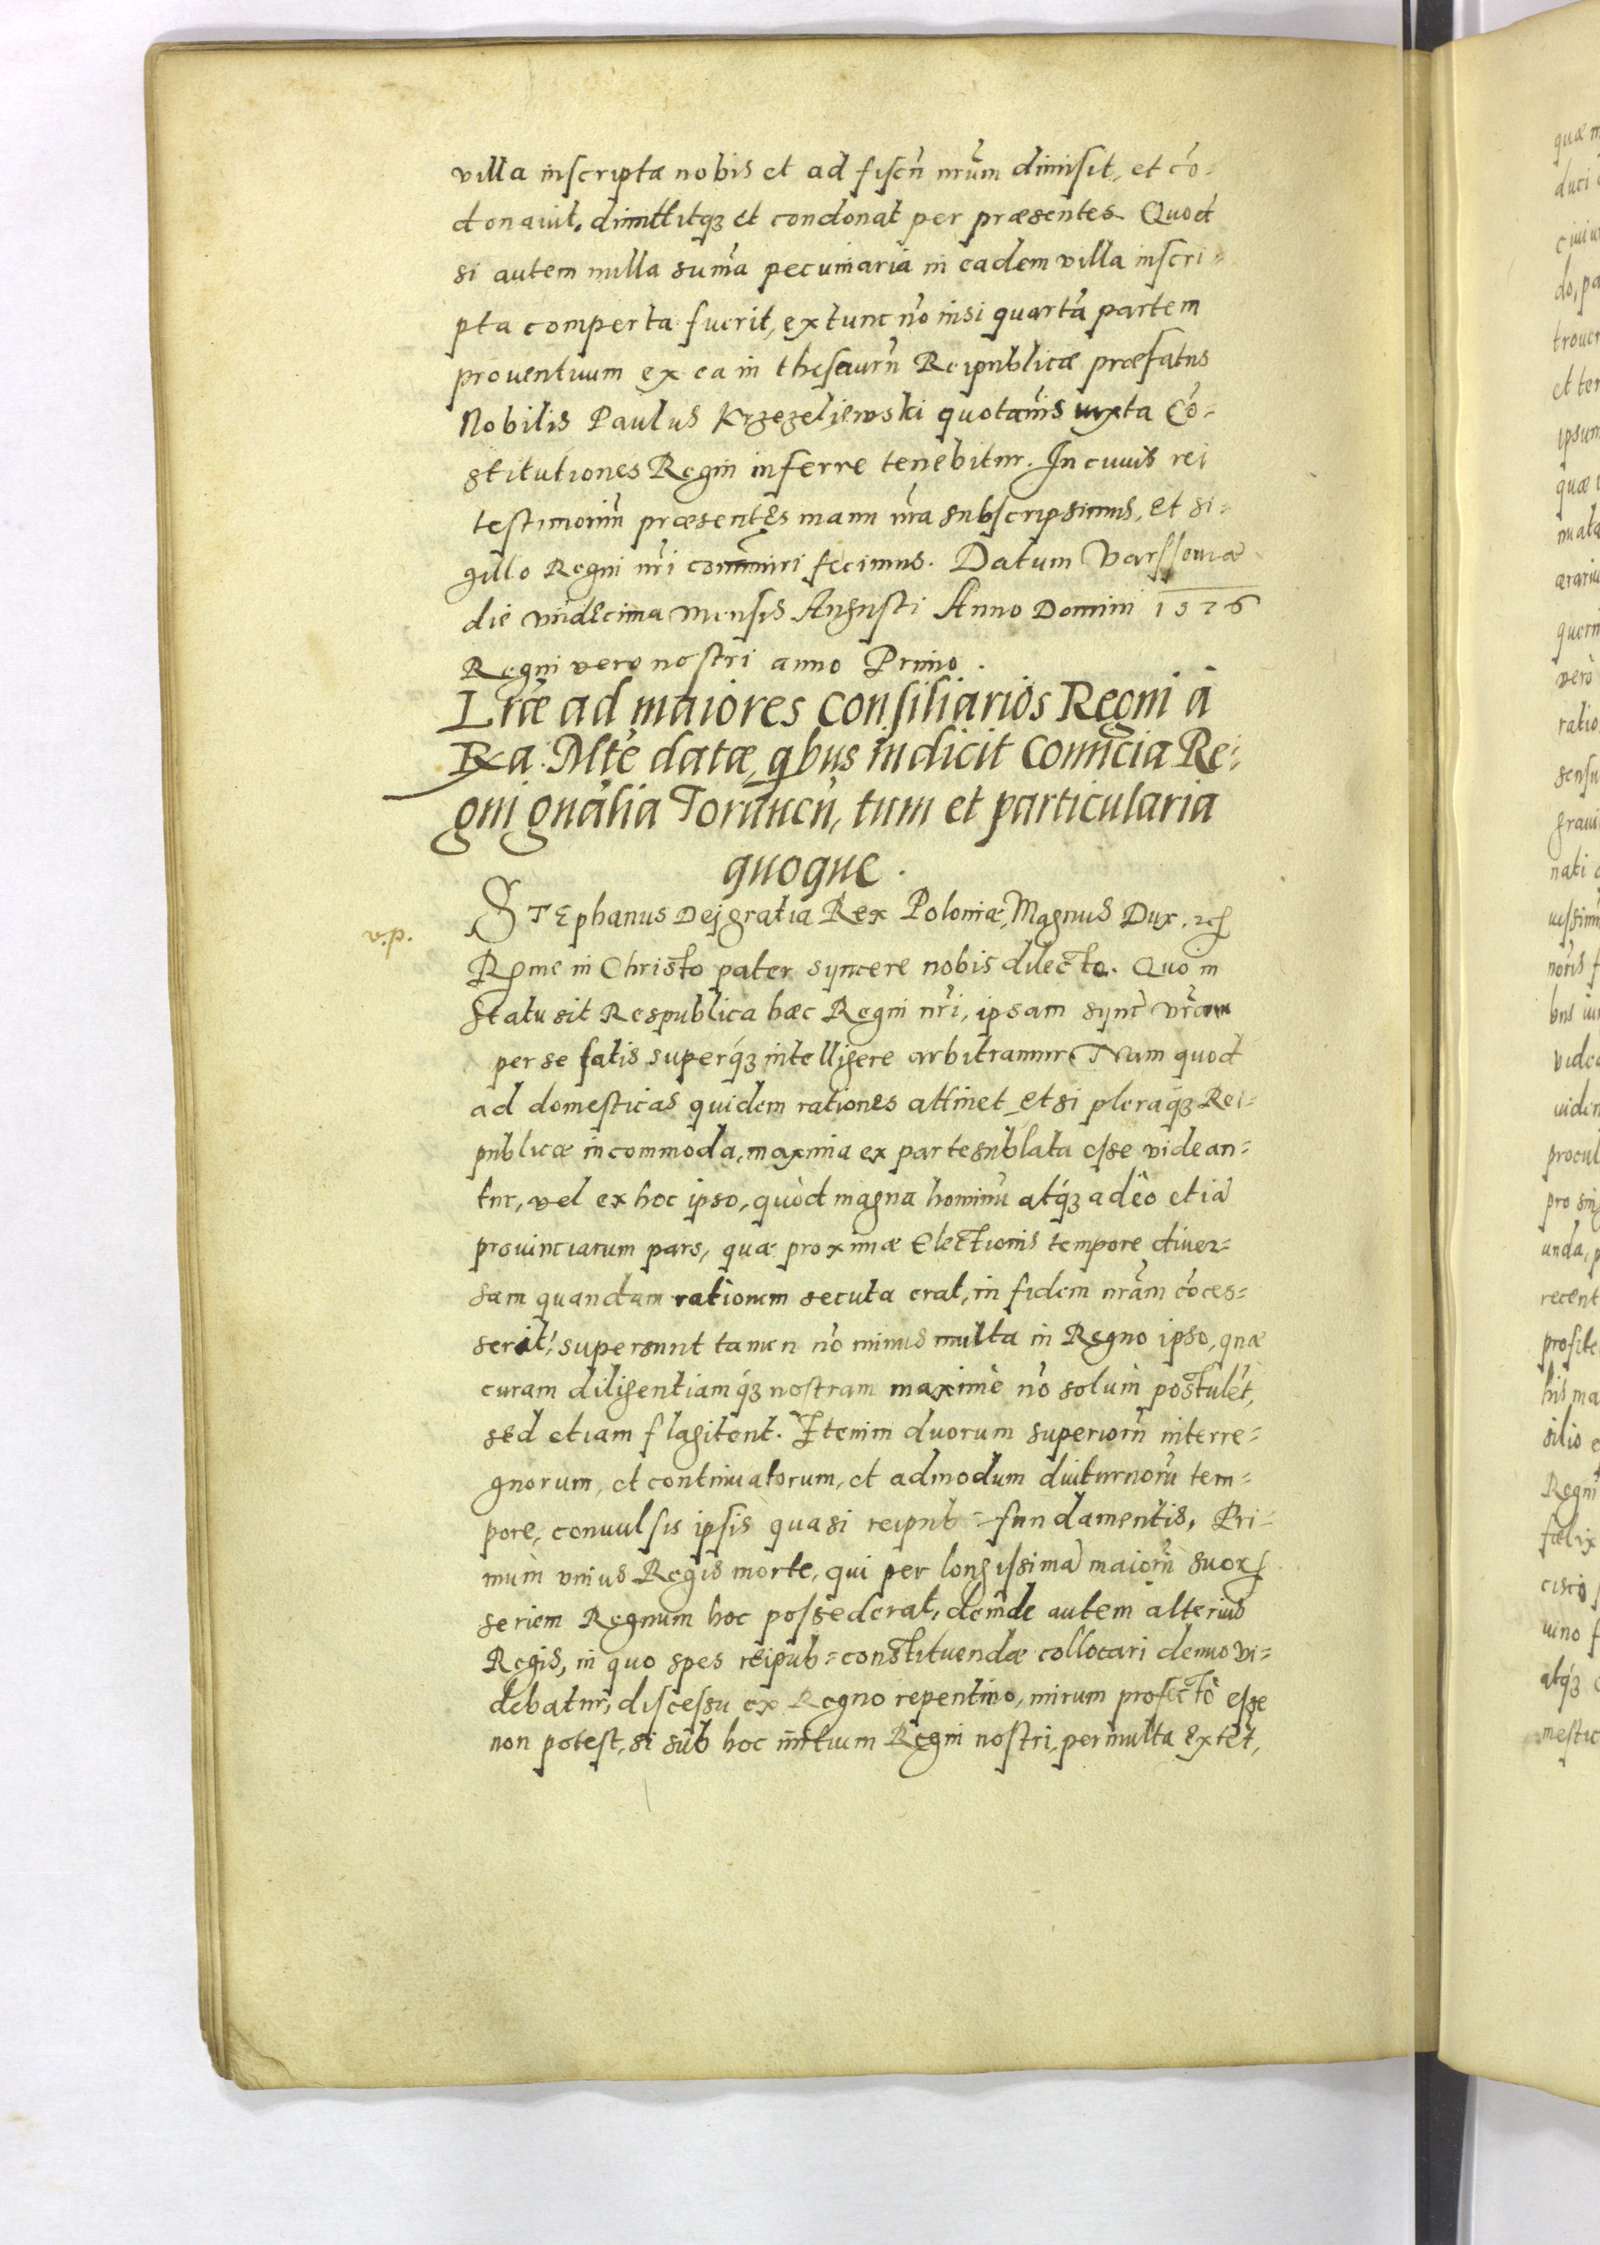 villa inscriptæ nobis et ad fiscũ nr̃um dimisit, et cõ-
donauit, dimittitqꝫ et condonat per præsentes. Quod
si autem nulla sum̃a pecuniaria in eadem villa inscri-
pta comperta fuerit, extunc nõ nisi quartã partem
prouentuum ex ea in thesaurũ Reipublicæ præfatus
Nobilis Paulus Krzezeljewski quotannis iuxta Cõ-
stitutiones Regni inferre tenebitur. In cuius rei
testimoniũ præsentes manu nr̃a subscripsimus, et si-
gillo Regni nr̃i com̃uniri fecimus. Datum Varssouiæ
die vndecima mensis Augusti Anno Domini 1576
Regni vero nostri anno Primo.
Lr̃æ ad maiores consiliarios Regni à
Rª. Mte datæ, qbus indicit Comicia Re-
gni gnãlia Torunen̄, tum et particularia
quoque.
STEphanus Dei gratia Rex Poloniæ, Magnus Dux, ꝛcꝭ
Rꝑme in Christo pater syncere nobis dilecte. Quo in
statu sit Respublica hæc Regni nr̃i, ipsam sync̃ vr̃am
per se satis superqꝫ intelligere arbitramur. Nam quod
ad domesticas quidem rationes attinet, etsi pleraqꝫ Rei-
publicæ incommoda, maxima ex parte sublata esse videan-
tur, vel ex hoc ipso, quòd magna hominũ atqꝫ adeò etiã
prouinciarum pars, quæ proximæ Electionis tempore diuer-
sam quandam rationem secuta erat, in fidem nr̃am cõces-
serit, supersunt tamen nõ minus multa in Regno ipso, quæ
curam diligentiamqꝫ nostram maximè nõ solùm postulẽt,
sed etiam flagitent. Etenim duorum superiorũ interre-
gnorum, et continuatorum, et admodum diuturnorũ tem-
pore, conuulsis ipsis quasi reipub= fundamentis, Pri-
mùm vnius Regis morte, qui per longissimã maiorũ suoꝝ
seriem Regnum hoc possederat, deinde autem alterius
Regis, in quo spes reipub= constituendæ collocari denuo vi-
debatur, discessu ex Regno repentino, mirum profectò esse
non potest, si sub hoc initium Regni nostri, permulta extẽt,